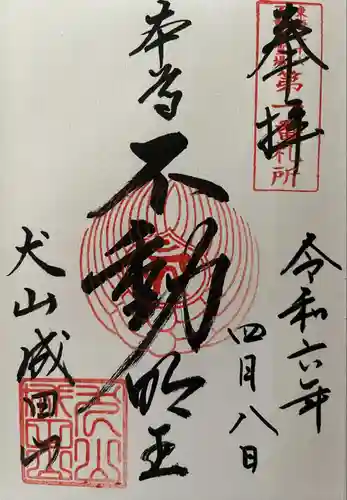 奉拝
第一番札所
令和六年
四月八日
本尊
不動明王
犬山成田山